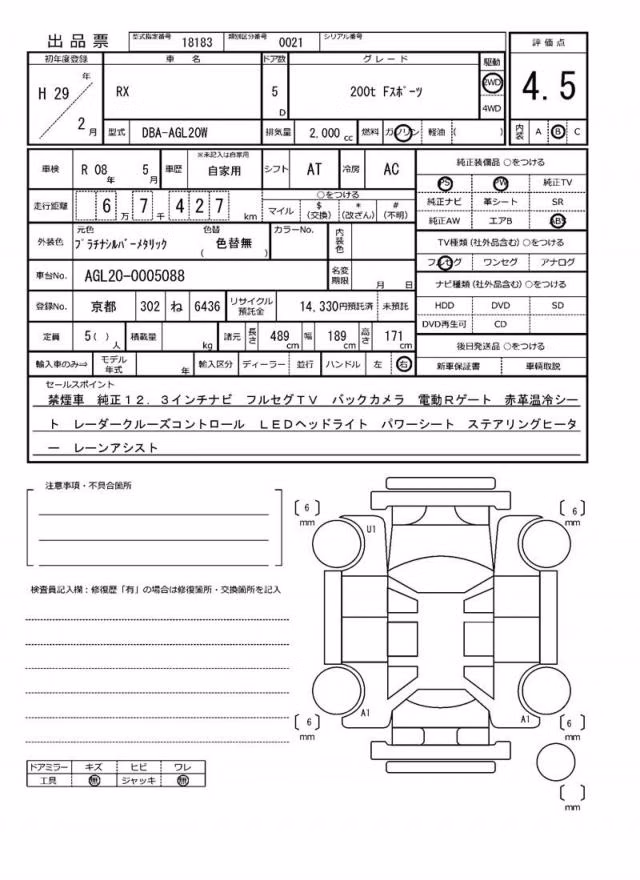 出品票 型式指定番号 18183 類別区分番号 0021 シリアル番号
初年度登録 車名 ドア数 グレード 駆動 評価点
H 29 年 2 月 RX 5 D 200t Fスポーツ 2WD 4WD 4.5
型式 DBA-AGL20W 排気量 2,000 cc 燃料 ガソリン 軽油 ( ) 内装 A B C
車検 R 08 年 5 月 車歴 ※未記入は自家用 自家用 シフト AT 冷房 AC
走行距離 6 万 7 千 4 2 7 km ○をつける マイル $ (交換) * (改ざん) # (不明)
外装色 元色 プラチナシルバーメタリック 色替 ( 色替無 ) カラーNo. 内装色
車台No. AGL20-0005088 名変期限 月 日
登録No. 京都 302 ね 6436 リサイクル預託金 14,330円預託済 未預託
定員 5 ( ) 人 積載量 kg 諸元 長さ 489 cm 幅 189 cm 高さ 171 cm
輸入車のみ⇒ モデル年式 年 輸入区分 ディーラー 並行 ハンドル 左 右
純正装備品 ○をつける
PS PW 純正TV
純正ナビ 革シート SR
純正AW エアB ABS
TV種類 (社外品含む) ○をつける
フルセグ ワンセグ アナログ
ナビ種類 (社外品含む) ○をつける
HDD DVD SD
DVD再生可 CD
後日発送品 ○をつける
新車保証書 車輌取説
セールスポイント
禁煙車 純正12.3インチナビ フルセグTV バックカメラ 電動Rゲート 赤革温冷シー
ト レーダークルーズコントロール LEDヘッドライト パワーシート ステアリングヒータ
ー レーンアシスト
注意事項・不具合箇所
検査員記入欄：修復歴「有」の場合は修復箇所・交換箇所を記入
ドアミラー キズ ヒビ ワレ
工具 無 ジャッキ 無
[ 6 ] mm
[ 6 ] mm
U1
A1
A1
[ 6 ] mm
[ 6 ] mm
[ ] mm